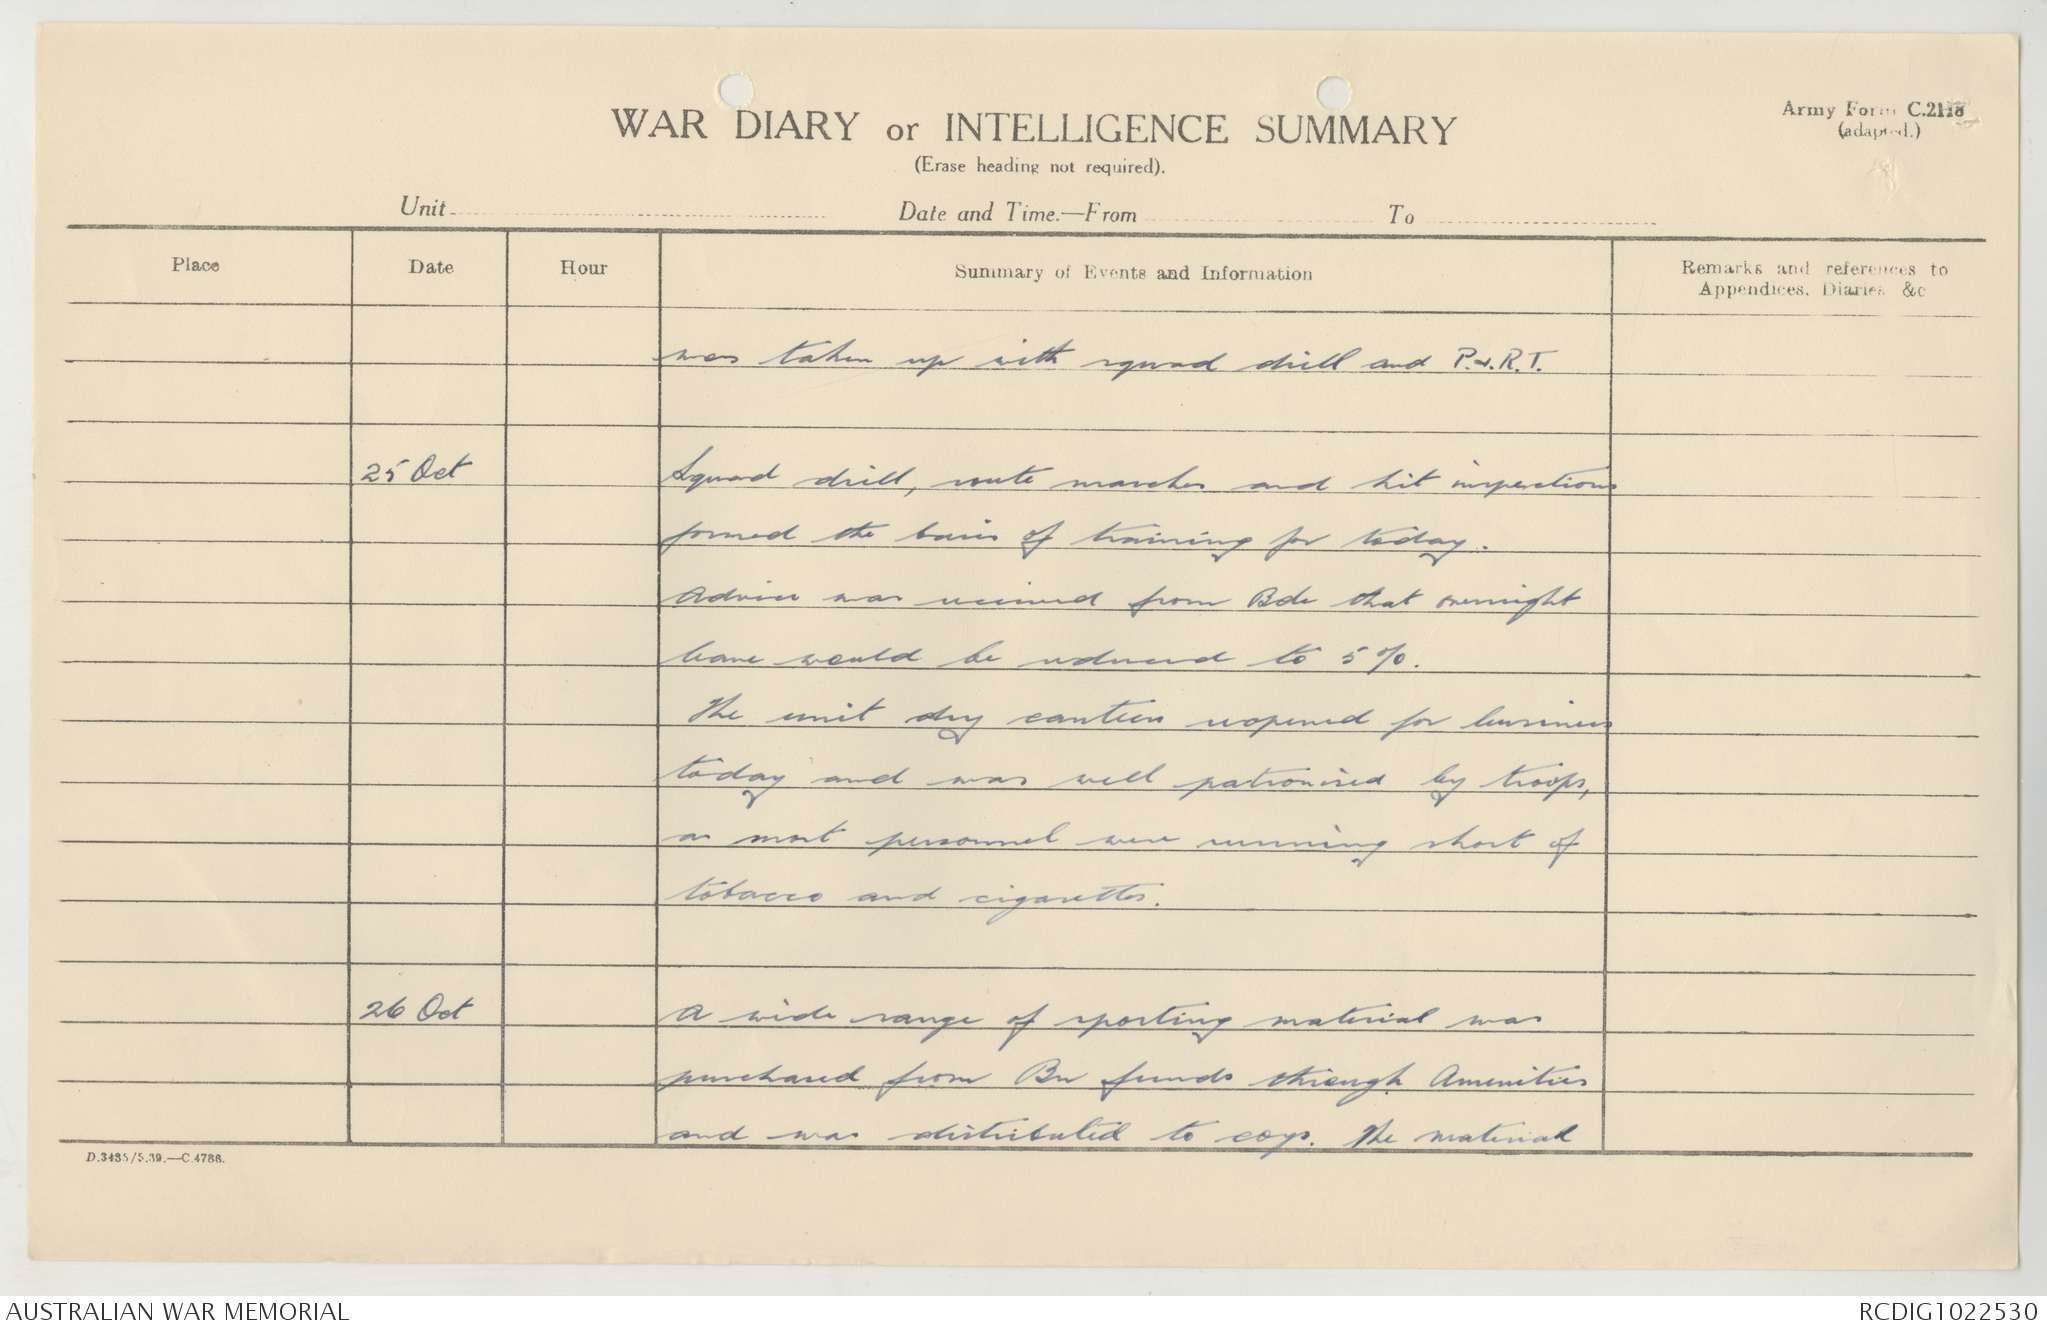 WAR DIARY or INTELLIGENCE SUMMARY
Army Form C.2118
(adapted.)
(Erase heading not required).
Unit Date and Time.—From To
Place Date Hour Summary of Events and Information Remarks and references to
Appendices, Diaries &c
was taken up with squad drill and P.&.R.T.
25 Oct Squad drill, route marches and kit inspections
formed the basis of training for today.
Advice was received from Bde that overnight
leave would be reduced to 5%.
The unit dry canteen reopened for business
today and was well patronised by troops,
as most personnel were running short of
tobacco and cigarettes.
26 Oct A wide range of sporting material was
purchased from Bn funds through Amenities
and was distributed to coys. The material
D.3485/5.39.—C.4788.
AUSTRALIAN WAR MEMORIAL RCDIG1022530